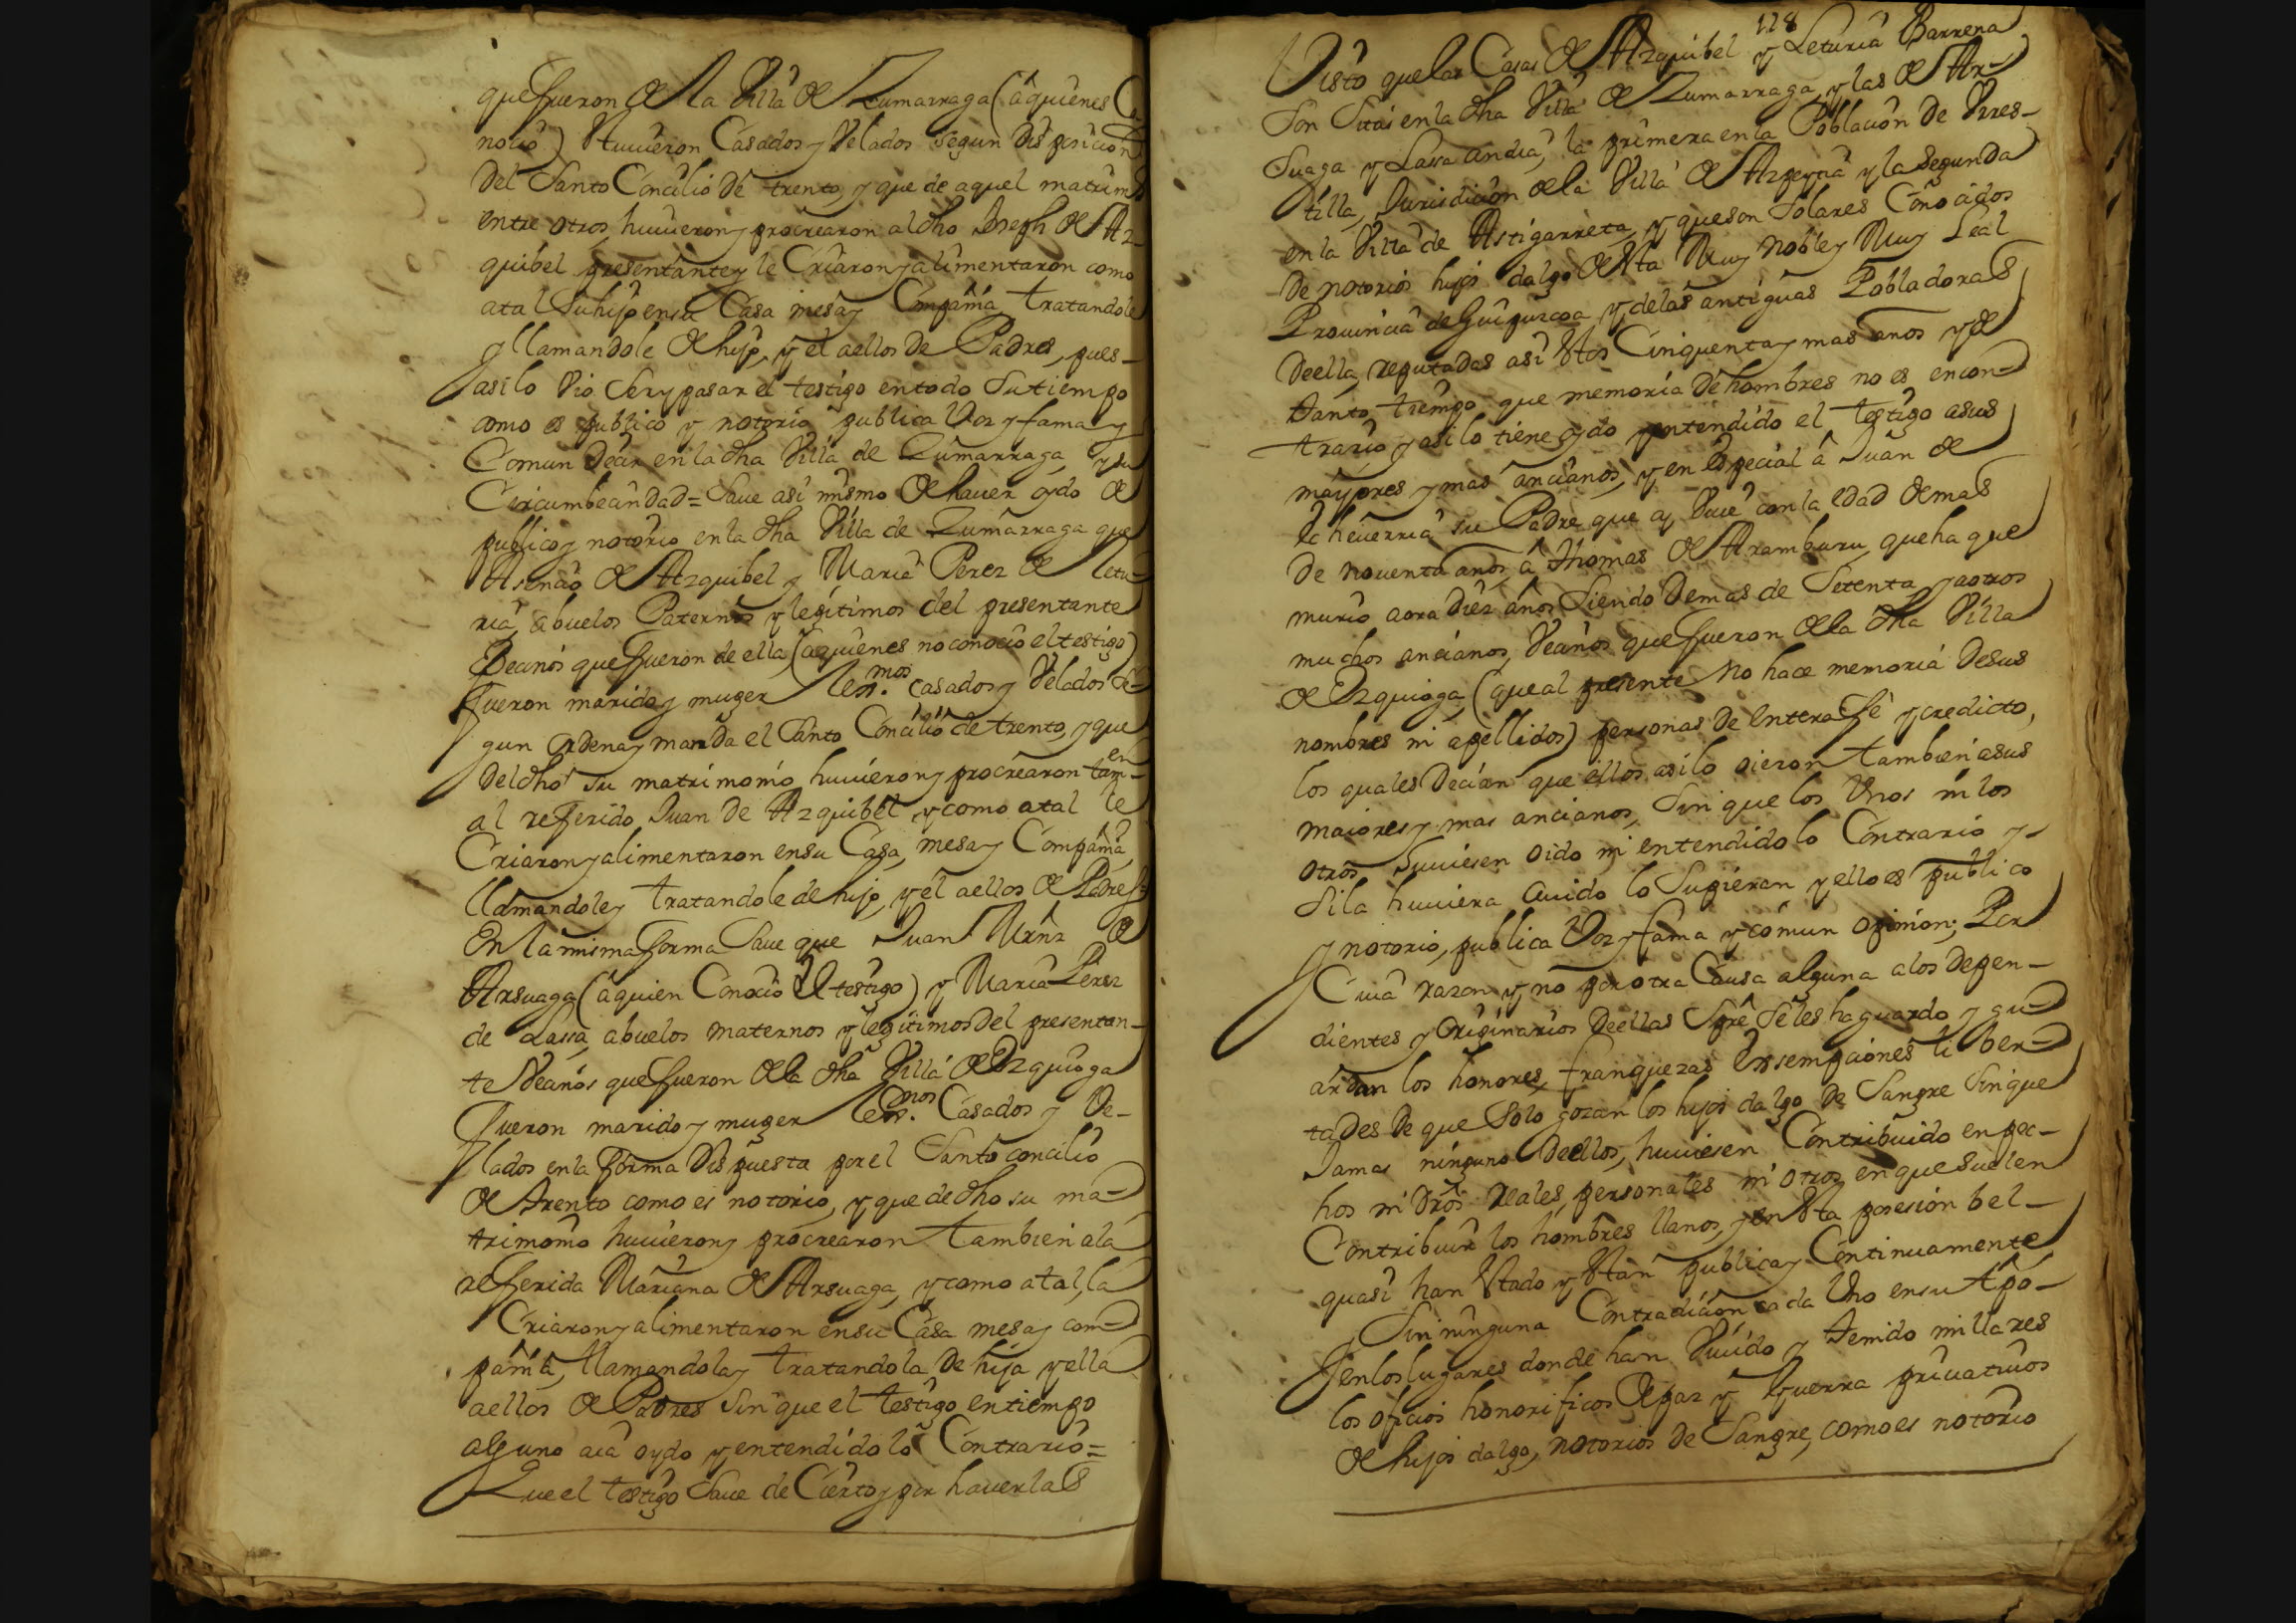 que fueron de la Villa de Zumarraga (a quienes Co-
nocio) stuuieron Casados y Velados segun Disposicion
Del Santo Concilio de trento, y que de aquel matrimo
entre otros, huuieron y procrearon al dho Joseph de Az-
quibel presentante y le Criaron y alimentaron como
a tal Su hijo en su Casa mesa y Compañia tratandole
y llamandole de hijo, y el a ellos de Padres, pues-
asi lo Vio Ser y pasar el testigo en todo Su tiempo
como es publico y notorio publica Voz y fama y
Comun Decir en la dha Villa de Zumarraga y su
Circumbecindad = Saue asi mismo de hauer oydo de
publico y notorio en la dha Villa de Zumarraga que
Asencio de Azquibel y Maria Perez de letu-
ria, abuelos Paternos y legitimos del presentante
Becinos que fueron de ella (a quienes no conocio el testigo)
fueron marido y muger lexmos. casados y Velados Se-
gun ordena y manda el Santo Concilio de trento, y que
Del dho su matrimonio huuieron y procrearon tamen-
al referido Juan De Azquibel y como a tal le
Criaron y alimentaron en su Casa, mesa y Compañia
llamandole y tratandole de hijo, y el a ellos de Padres =
En la misma forma Saue que Juan Mrnz de
Arsuaga (a quien Conocio el testigo) y Maria Perez
de Lasa, abuelos maternos y legitimos Del presentan-
te Vecinos que fueron de la dha Villa de Ezquioga
fueron marido y muger lexmos. Casados y Ve-
lados en la forma Dispuesta por el Santo concilio
de trento como es notorio, y que de dho su ma-
trimonio huuieron y procrearon tambien a la
referida Mariana de Arsuaga, y como a tal, la
Criaron y alimentaron en su Casa mesa y com-
pañia, llamandola y tratandola De hija y ella
a ellos de Padres Sin que el testigo en tiempo
alguno aia oydo y entendido lo Contrario =
Que el testigo Saue de Cierto y por hauerlas
118
Visto que las Casas de Azquibel y Leturia Barrena
Son Sitas en la dha Villa de Zumarraga, y las de Ar-
Suaga y Lasa andia, la primera en la Poblacion De Vres-
tilla, Jurisdicion de la Villa de Azpeytia y la Segunda
en la Villa de Astigarreta, y que son Solares Conocidos
De notorios hijos dalgo de sta Muy Noble y Muy Leal
Prouincia de Guipuzcoa y de las antiguas Pobladoras
de ella, reputadas asi stos Cinquenta y mas anos y de
tanto tiempo que memoria De hombres no es encon-
trario y asi lo tiene oydo y entendido el testigo a sus
mayores y mas ancianos, y en especial a Juan de
Echeuerria su Padre que oy Viue con la edad de mas
De nouenta anos, a Thomas de Aramburu que ha que
murio aora Diez años Siendo Demas de Setenta, y a otros
muchos ancianos, Vecinos que fueron de la dha Villa
de Ezquioga (que al presente No hace memoria De sus
nombres ni apellidos) personas De entera fe y credicto,
los quales Decian que ellos asi lo oieron tambien a sus
maiores y mas ancianos, Sin que los Vnos ni los
otros huuiesen oido ni entendido lo Contrario y
Si la huuiera auido lo Supieran y ello es publico
y notorio, publica Voz y fama y comun opinion; Por
Cuia razon y no por otra Causa alguna a los depen-
dientes y originarios De ellas Spre Se les ha guardo y gu-
ardan los honores, franquezas Exsempciones liber-
tades De que Solo gozan los hijos dalgo De Sangre Sin que
Jamas ninguno De ellos, huuiesen Contribuido en pec-
hos ni Dros Reales, personales ni otros en que Suelen
Contribuir los hombres llanos, y en sta posesion bel-
quasi han stado y stan publica y Continuamente
Sin ninguna Contradicion cada Vno en su tpo-
y en los lugares donde han Viuido y tenido millares
los oficios honorificos de paz y Guerra priuatiuos
de hijos dalgo, notorios de Sangre, como es notorio